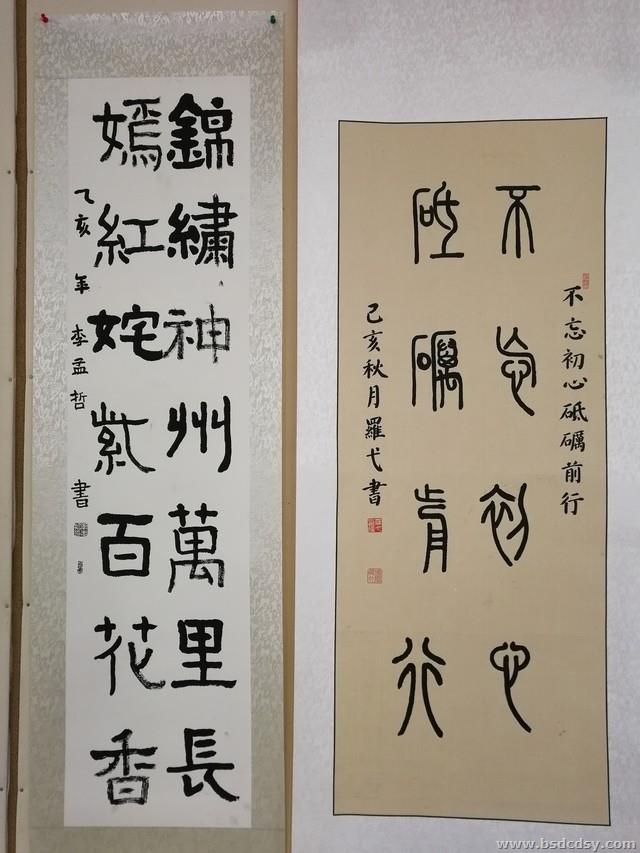 錦繡神州萬里長
嫣紅姹紫百花香
乙亥年 李孟哲 書
不忘初心
砥礪前行
不忘初心砥礪前行
己亥秋月羅弋書
www.bsdcdsy.com